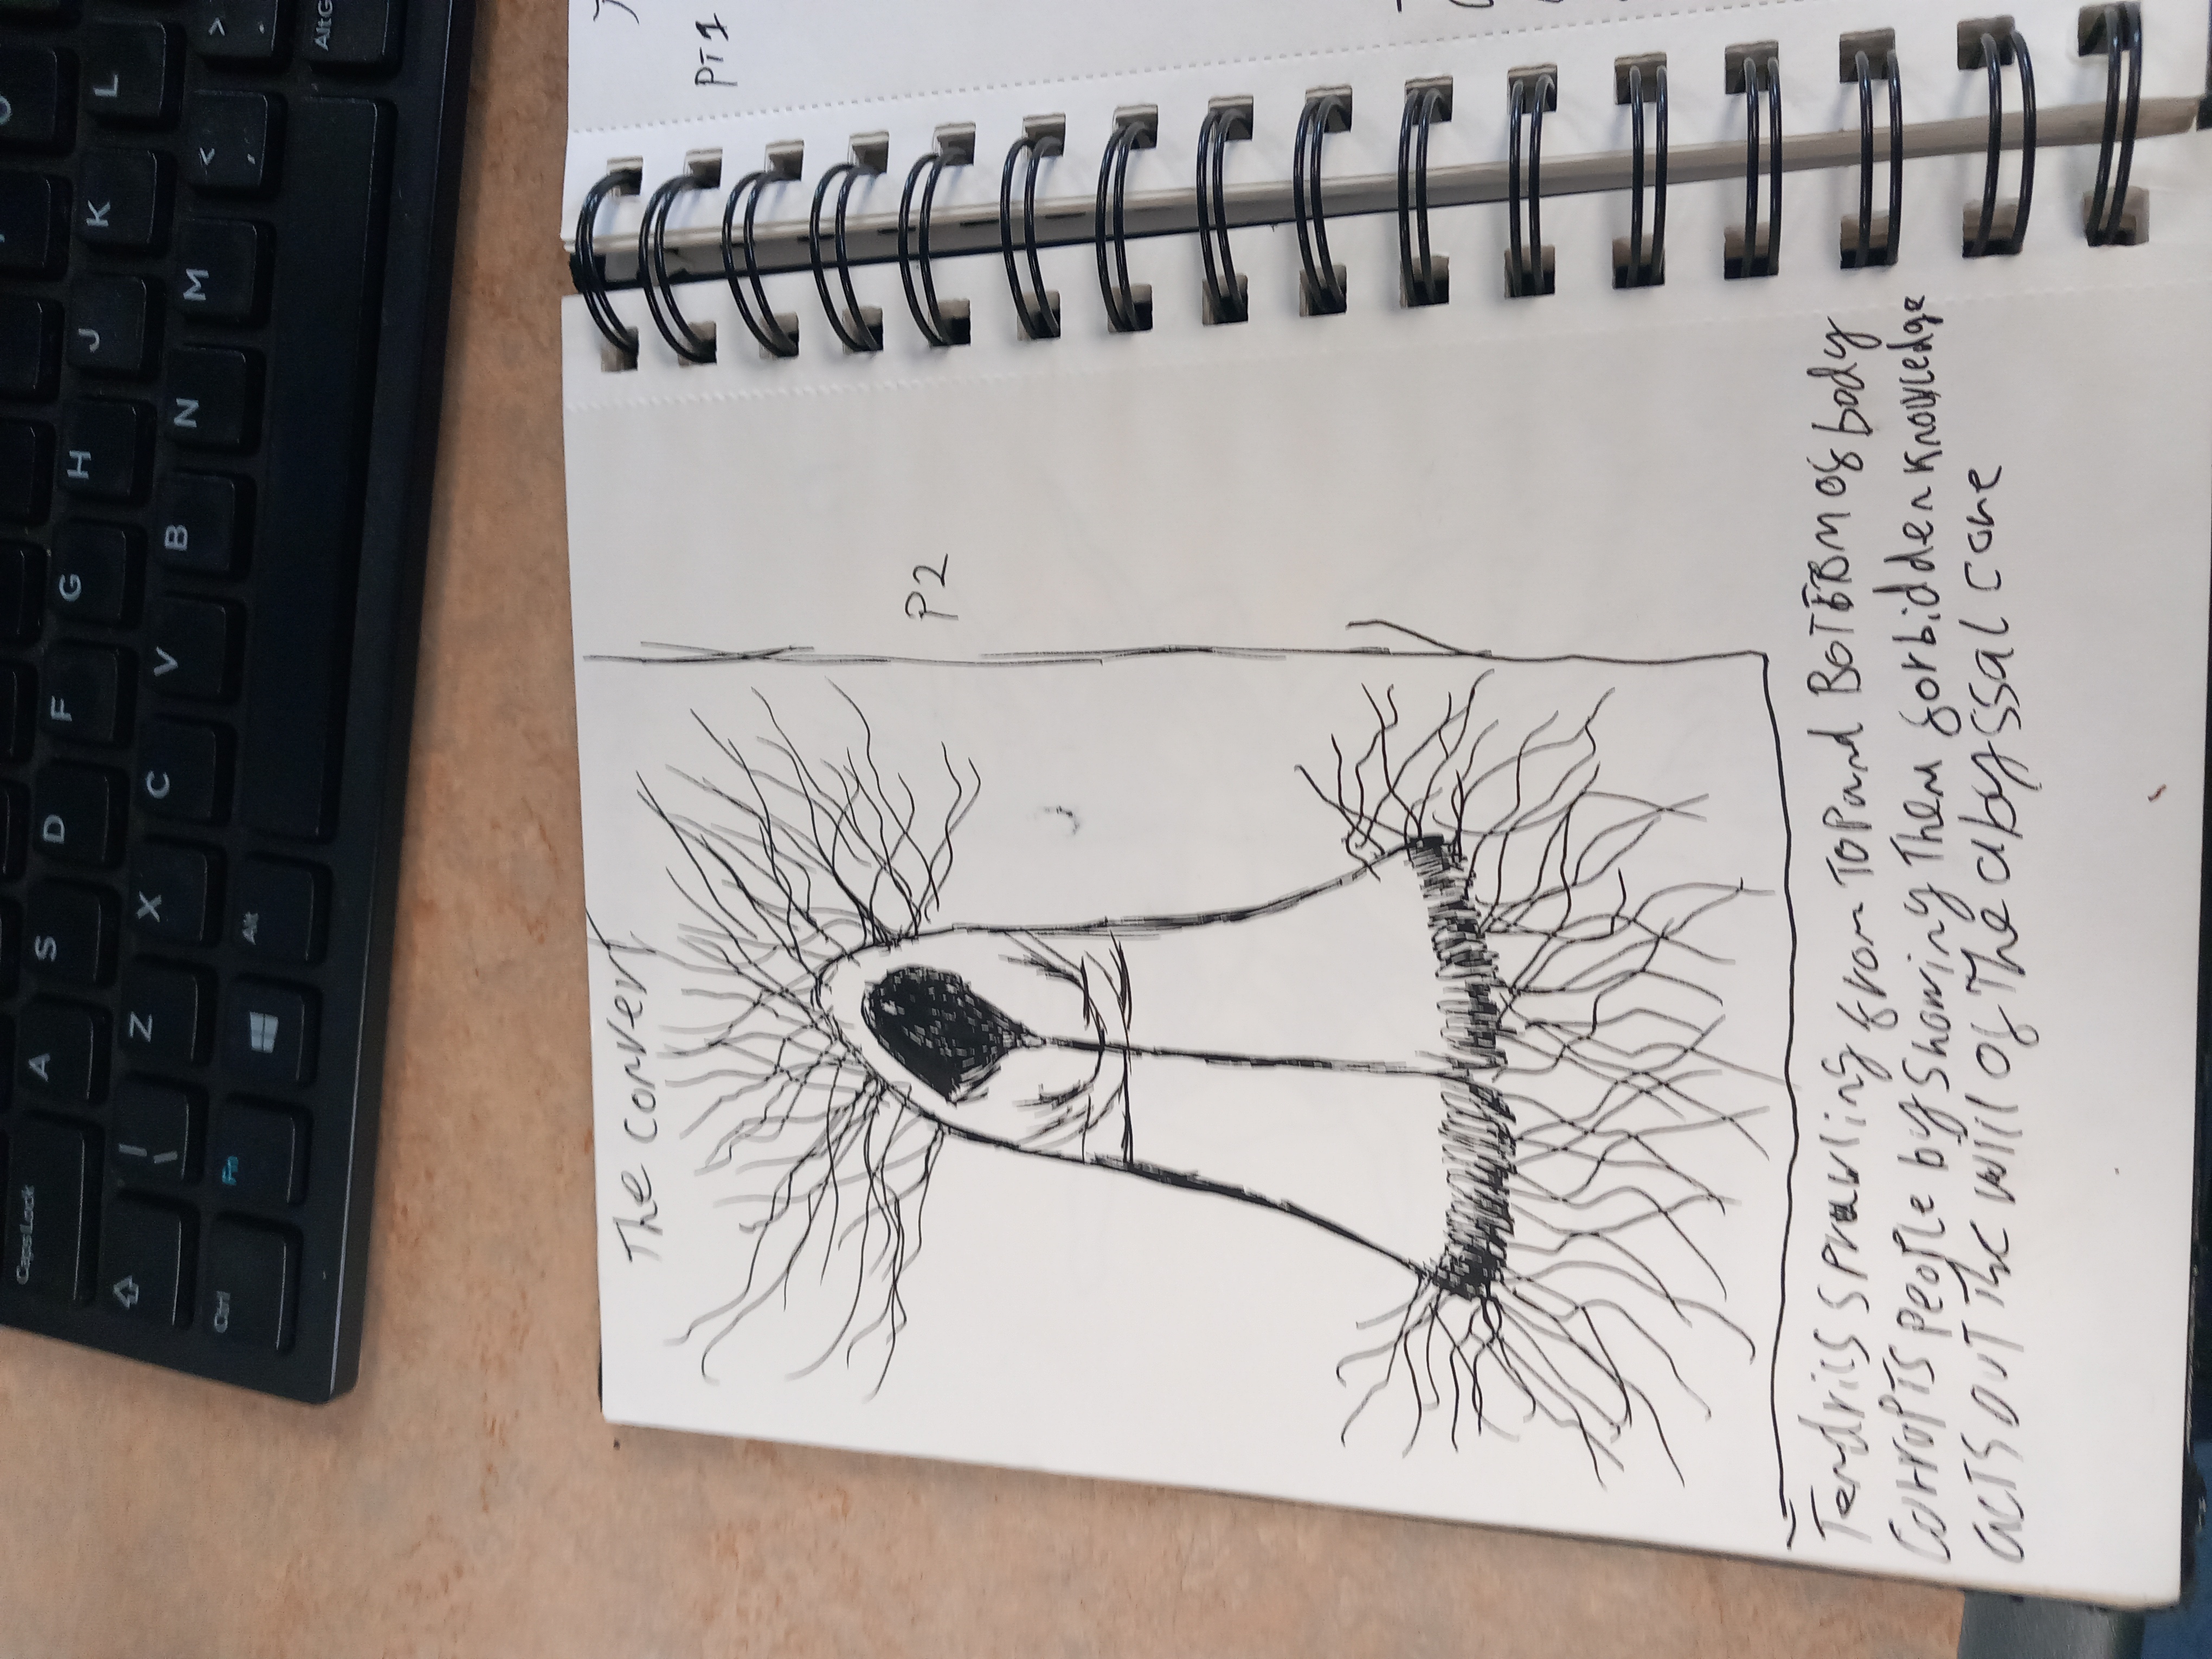 Caps Lock A S D F G H J K L
| \ Z X C V B N M < , > .
Ctrl Fn Alt AltG
The convert
P2
PT1
Tendrils sprawling from TOP and BOTTOM of body
CorrupTs people by showing Them forbidden knowledge
acTs ouT The will of The abyssal core